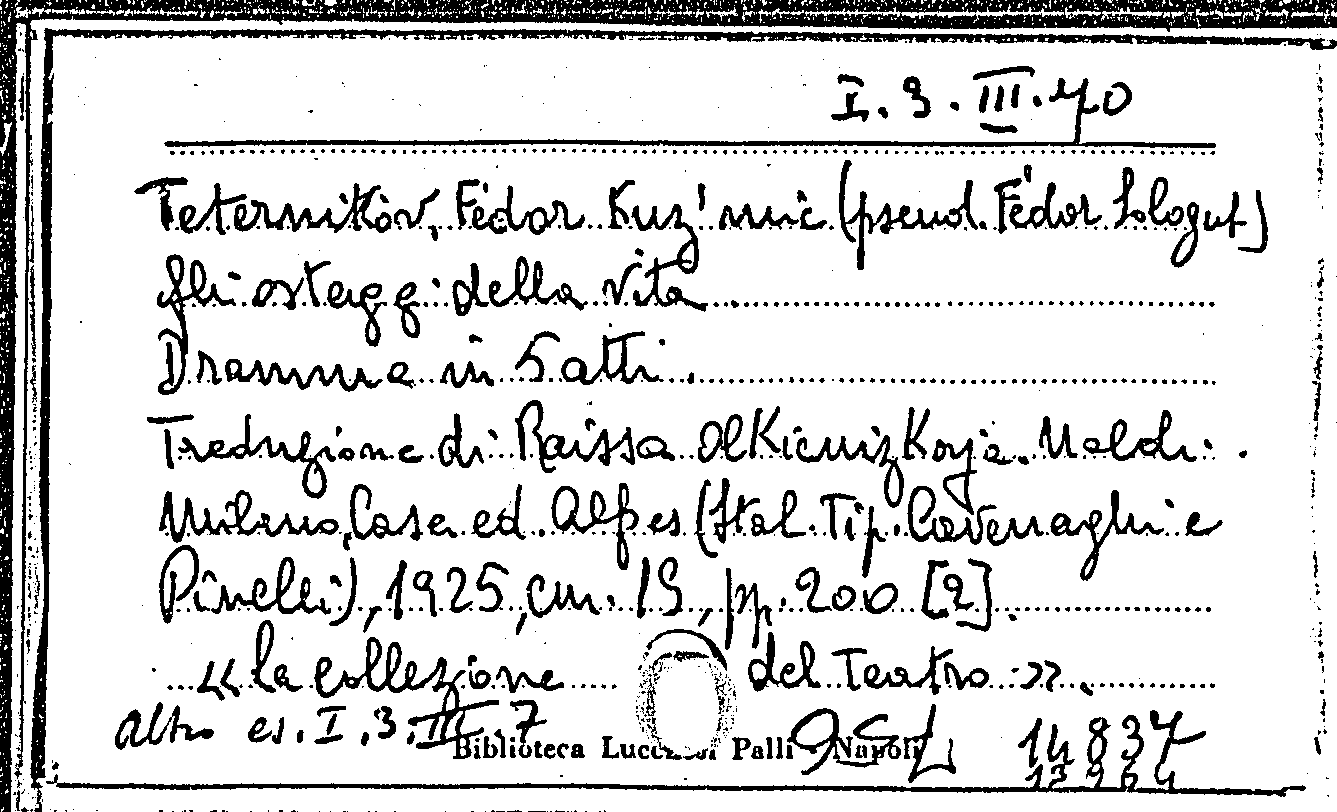 I. 3. III. 40
Teternikov, Fëdor Kuz'mic (pseud. Fëdor Sologub)
Gli ostaggi della vita
Dramma in 5 atti.
Traduzione di Raissa Olkienizkaja Naldi.
Milano, Casa ed. Alpes (Stab. Tip. Cavenaghi e
Pinelli), 1925, cm. 19, pp. 200 [2].
« la collezione del Teatro ».
altro es. I. 3. III. 7
Biblioteca Lucchesi Palli - Napoli
14837
13964